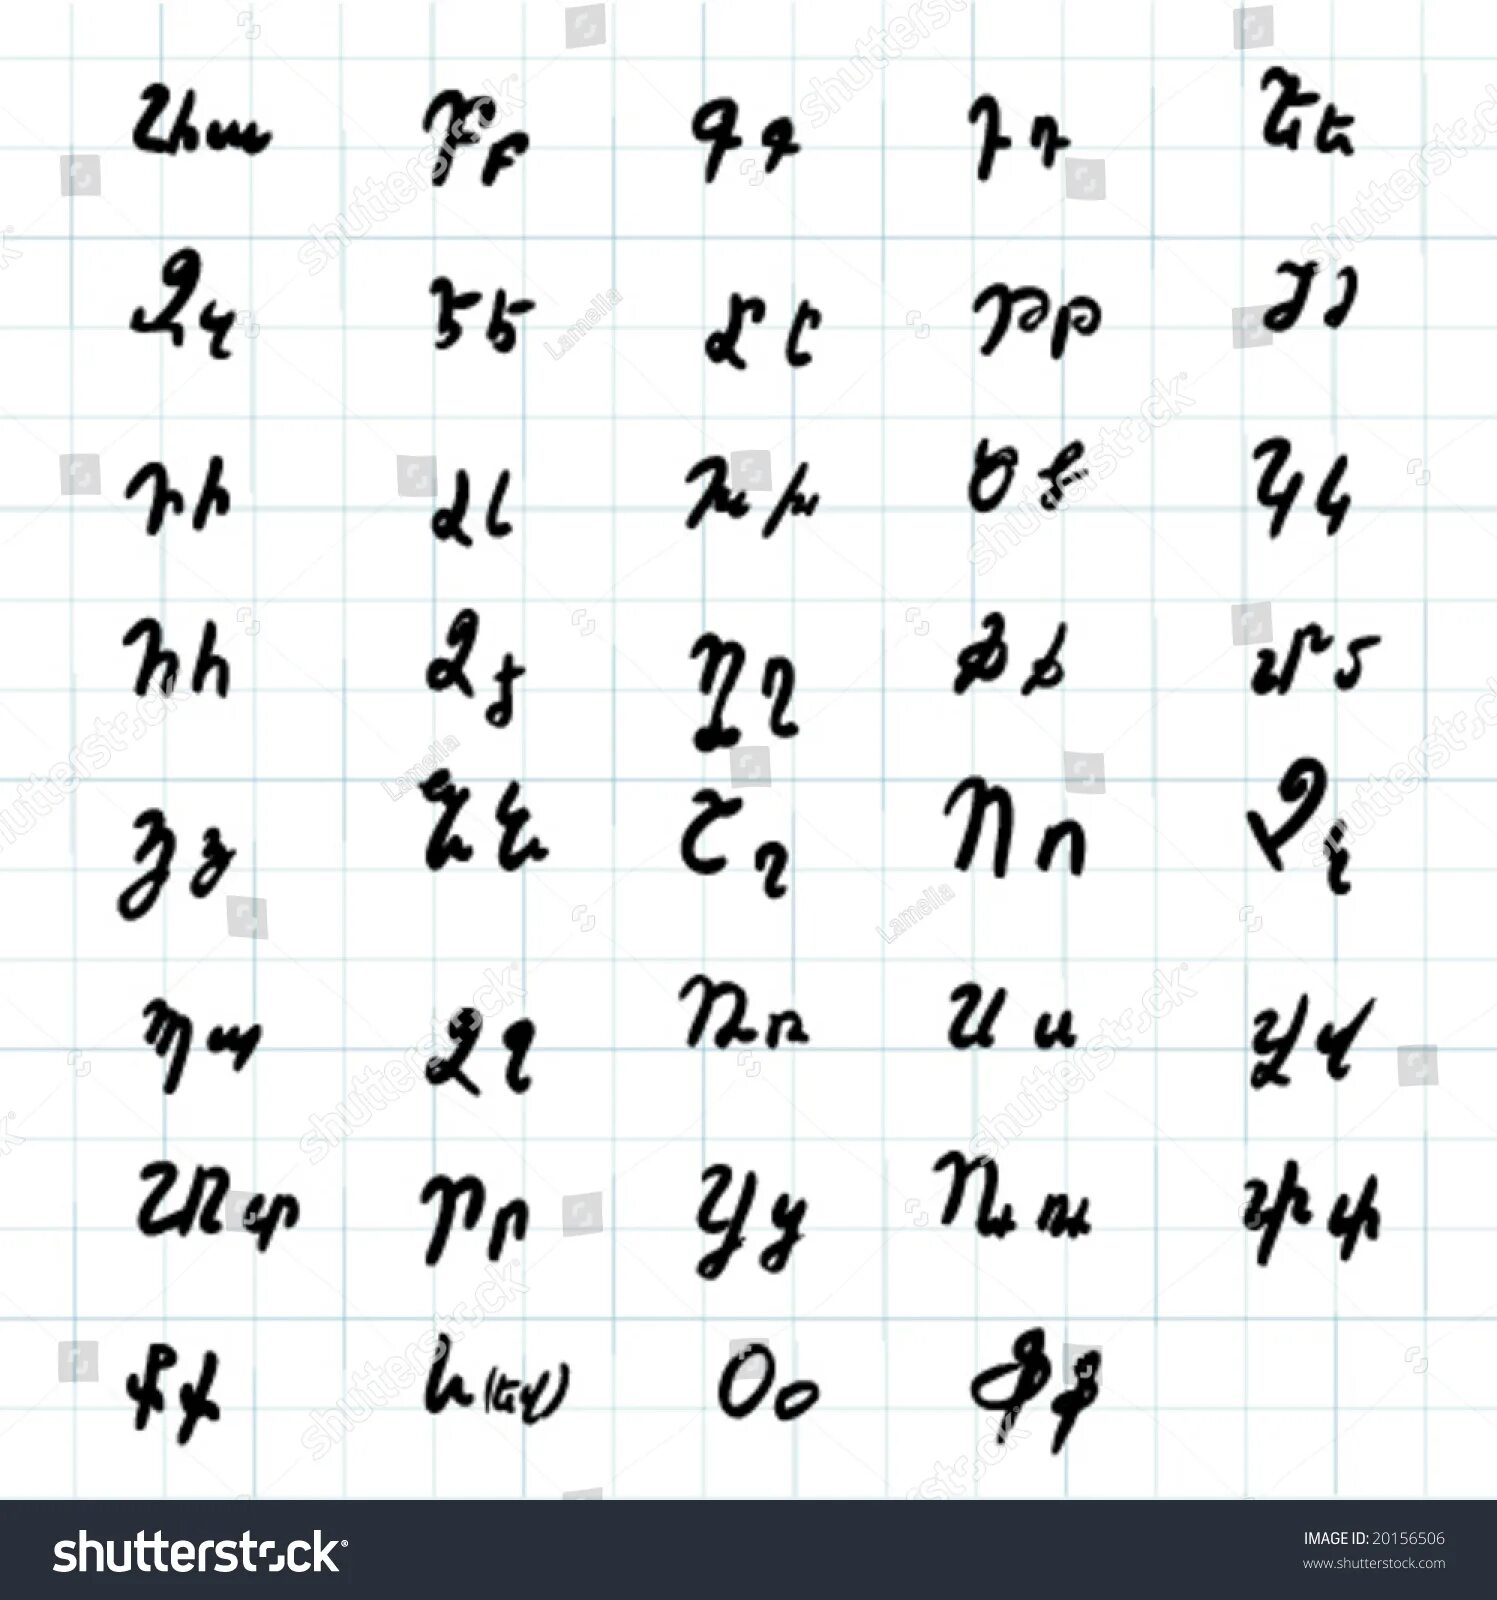 Ա ա Բ բ Գ գ Դ դ Ե ե
Զ զ Է է Ը ը Թ թ Ժ ժ
Ի ի Լ լ Խ խ Ծ ծ Կ կ
Հ հ Ձ ձ Ղ ղ Ճ ճ Մ մ
Յ յ Ն ն Շ շ Ո ո Չ չ
Պ պ Ջ ջ Ռ ռ Ս ս Վ վ
Տ տ Ր ր Ց ց Ու ու Փ փ
Ք ք և (եվ) Օ օ Ֆ ֆ
shutterstock
IMAGE ID: 20156506
www.shutterstock.com